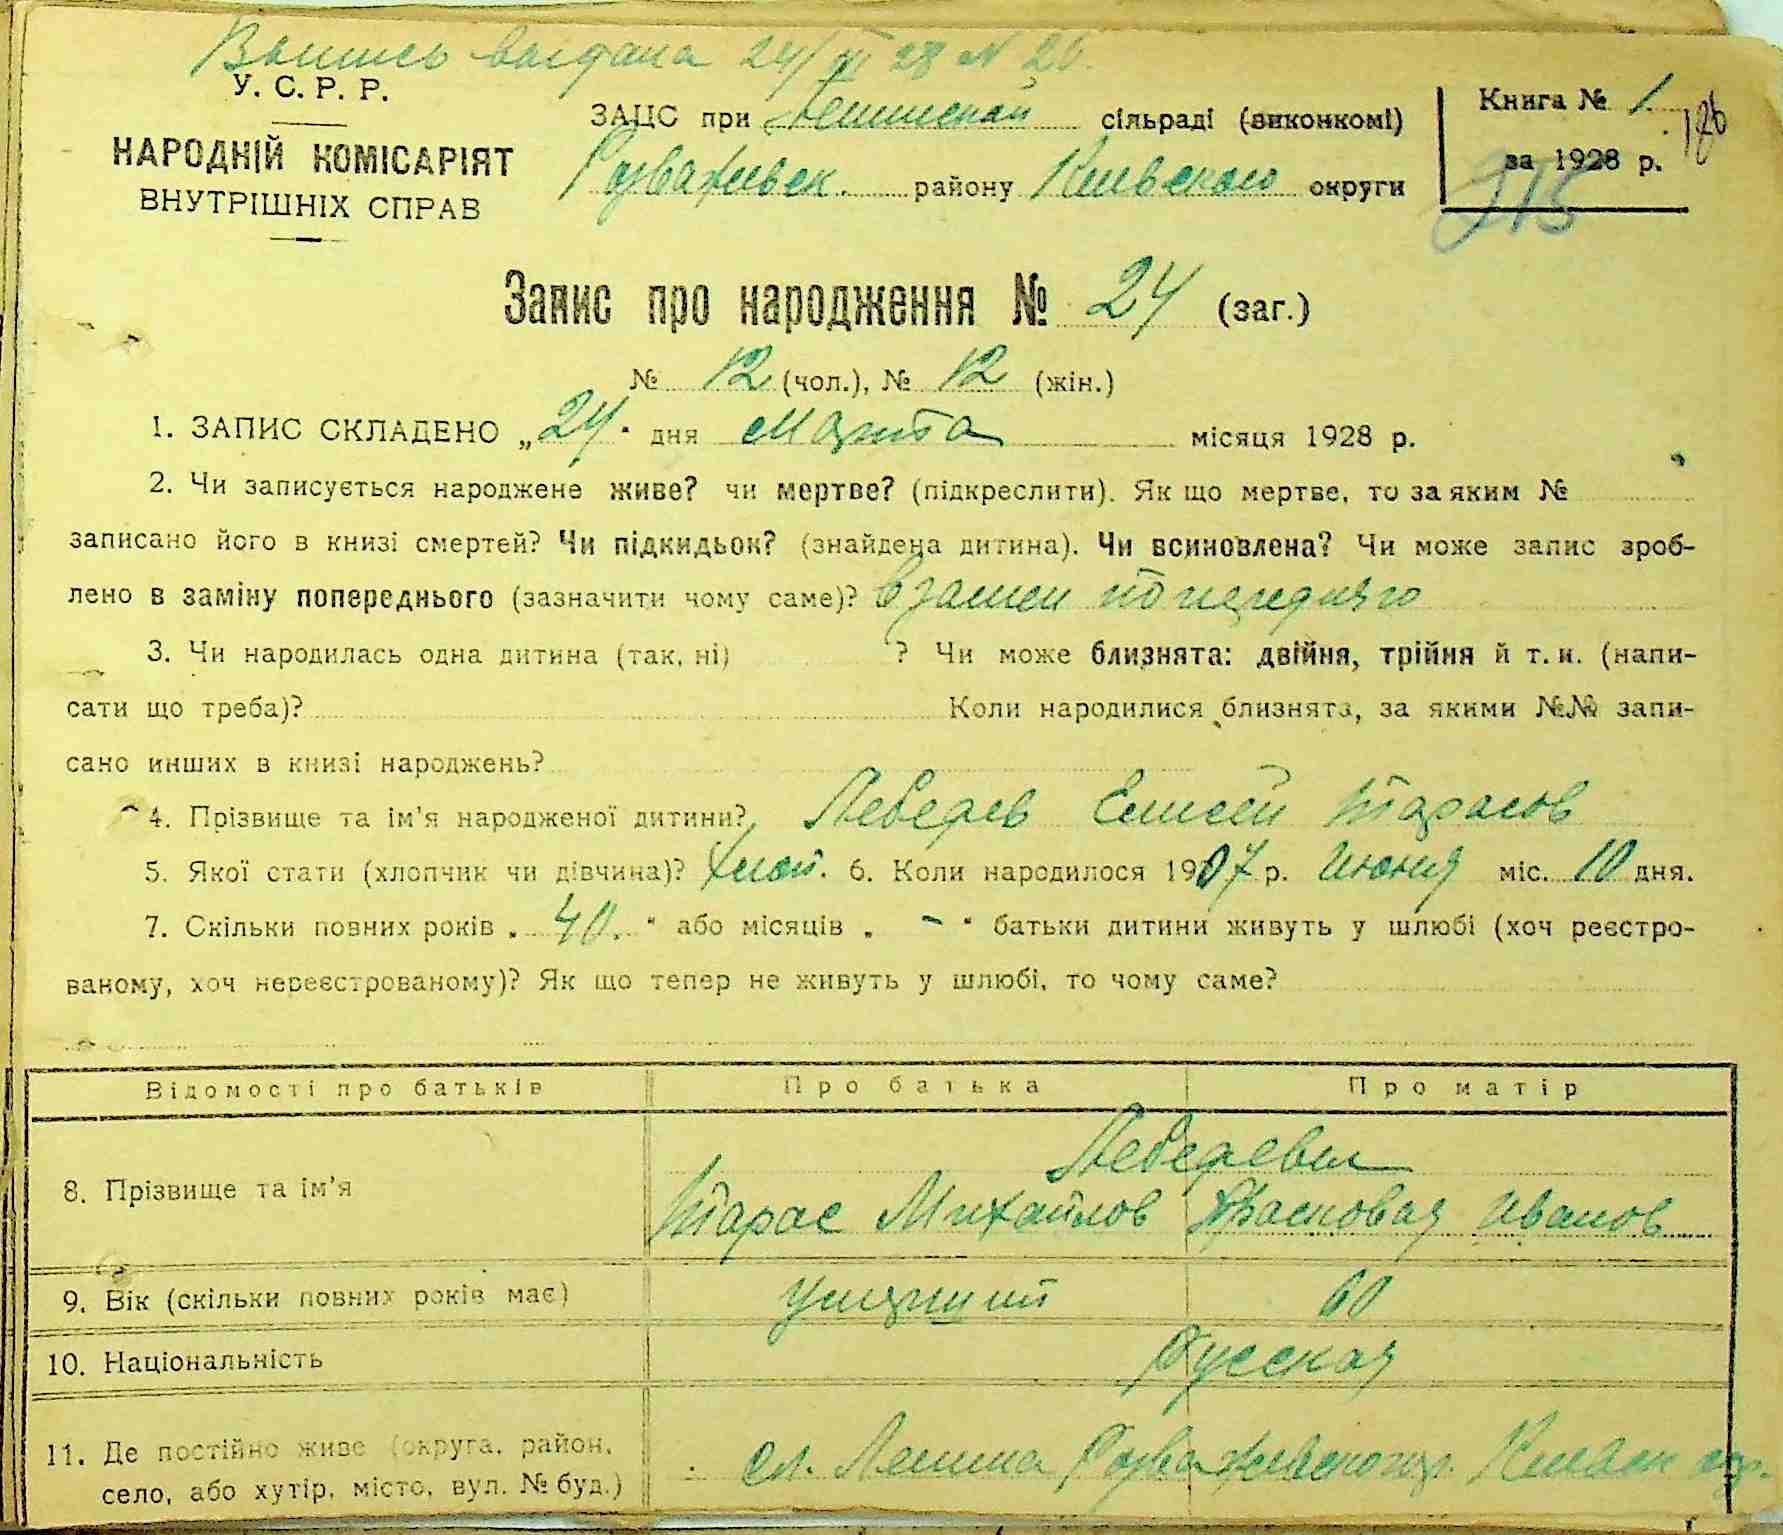 Выпись выдана 24/III 28 N 20.
У. С. Р. Р.
НАРОДНІЙ КОМІСАРІЯТ
ВНУТРІШНІХ СПРАВ
ЗАЦС при сільраді (виконкомі)
Розваживск. району Киевского округи
Книга № 1.
за 1928 р.
186
215
Запис про народження № 24 (заг.)
№ 12 (чол.), № 12 (жін.)
1. ЗАПИС СКЛАДЕНО „24" дня Марта місяця 1928 р.
2. Чи записується народжене живе? чи мертве? (підкреслити). Як що мертве, то за яким №
записано його в книзі смертей? Чи підкидьок? (знайдена дитина). Чи всиновлена? Чи може запис зроб-
лено в заміну попереднього (зазначити чому саме)? взамен попередняго
3. Чи народилась одна дитина (так, ні) ? Чи може близнята: двійня, трійня й т. и. (напи-
сати що треба)? Коли народилися близнята, за якими №№ запи-
сано инших в книзі народжень?
4. Прізвище та ім'я народженої дитини? Лебедев Елисей Тарасов
5. Якої стати (хлопчик чи дівчина)? 6. Коли народилося 1907 р. Июня міс. 10 дня.
7. Скільки повних років „ 40. " або місяців „ - " батьки дитини живуть у шлюбі (хоч реєстро-
ваному, хоч нереєстрованому)? Як що тепер не живуть у шлюбі, то чому саме?
Відомості про батьків Про батька Про матір
Лебедевы
8. Прізвище та ім'я
Тарас Михайлов Иванов
9. Вік (скільки повних років має) Умерший 60
10. Національність Русская
11. Де постійно живе (округа, район, сл. Лешиа Киевск окр.
село, або хутір, місто, вул. № буд.)